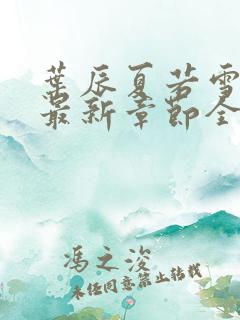 葉辰夏若雪
最新章節全
冯之浚
未经同意禁止转载